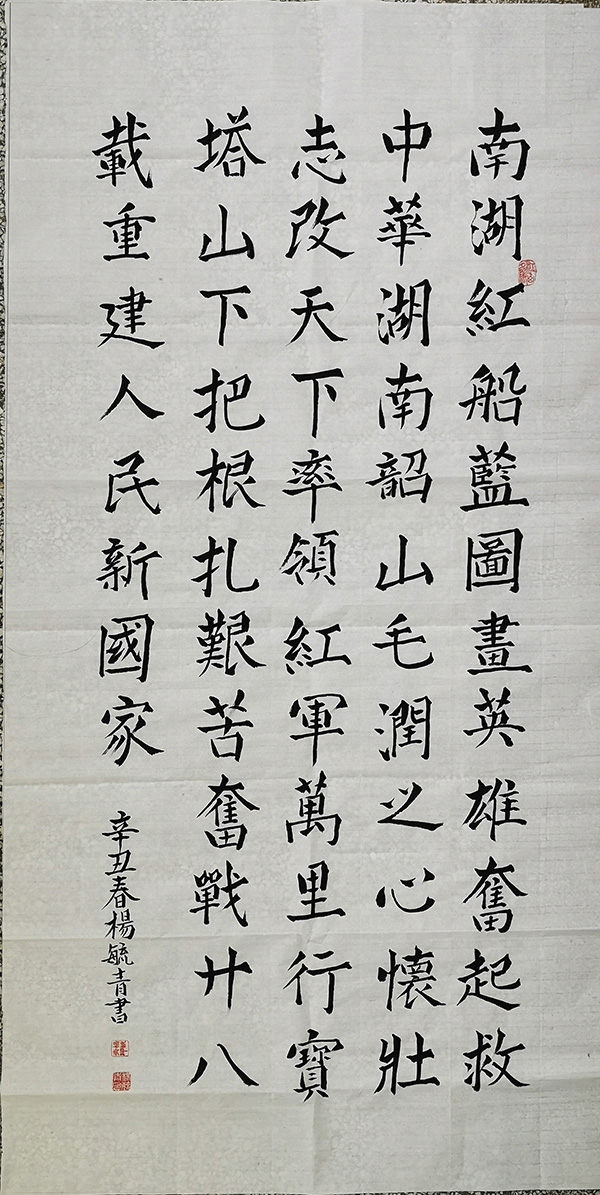 南湖紅船藍圖畫英雄奮起救
中華湖南韶山毛潤之心懷壯
志改天下率領紅軍萬里行寶
塔山下把根扎艱苦奮戰廿八
載重建人民新國家
辛丑春楊毓青書